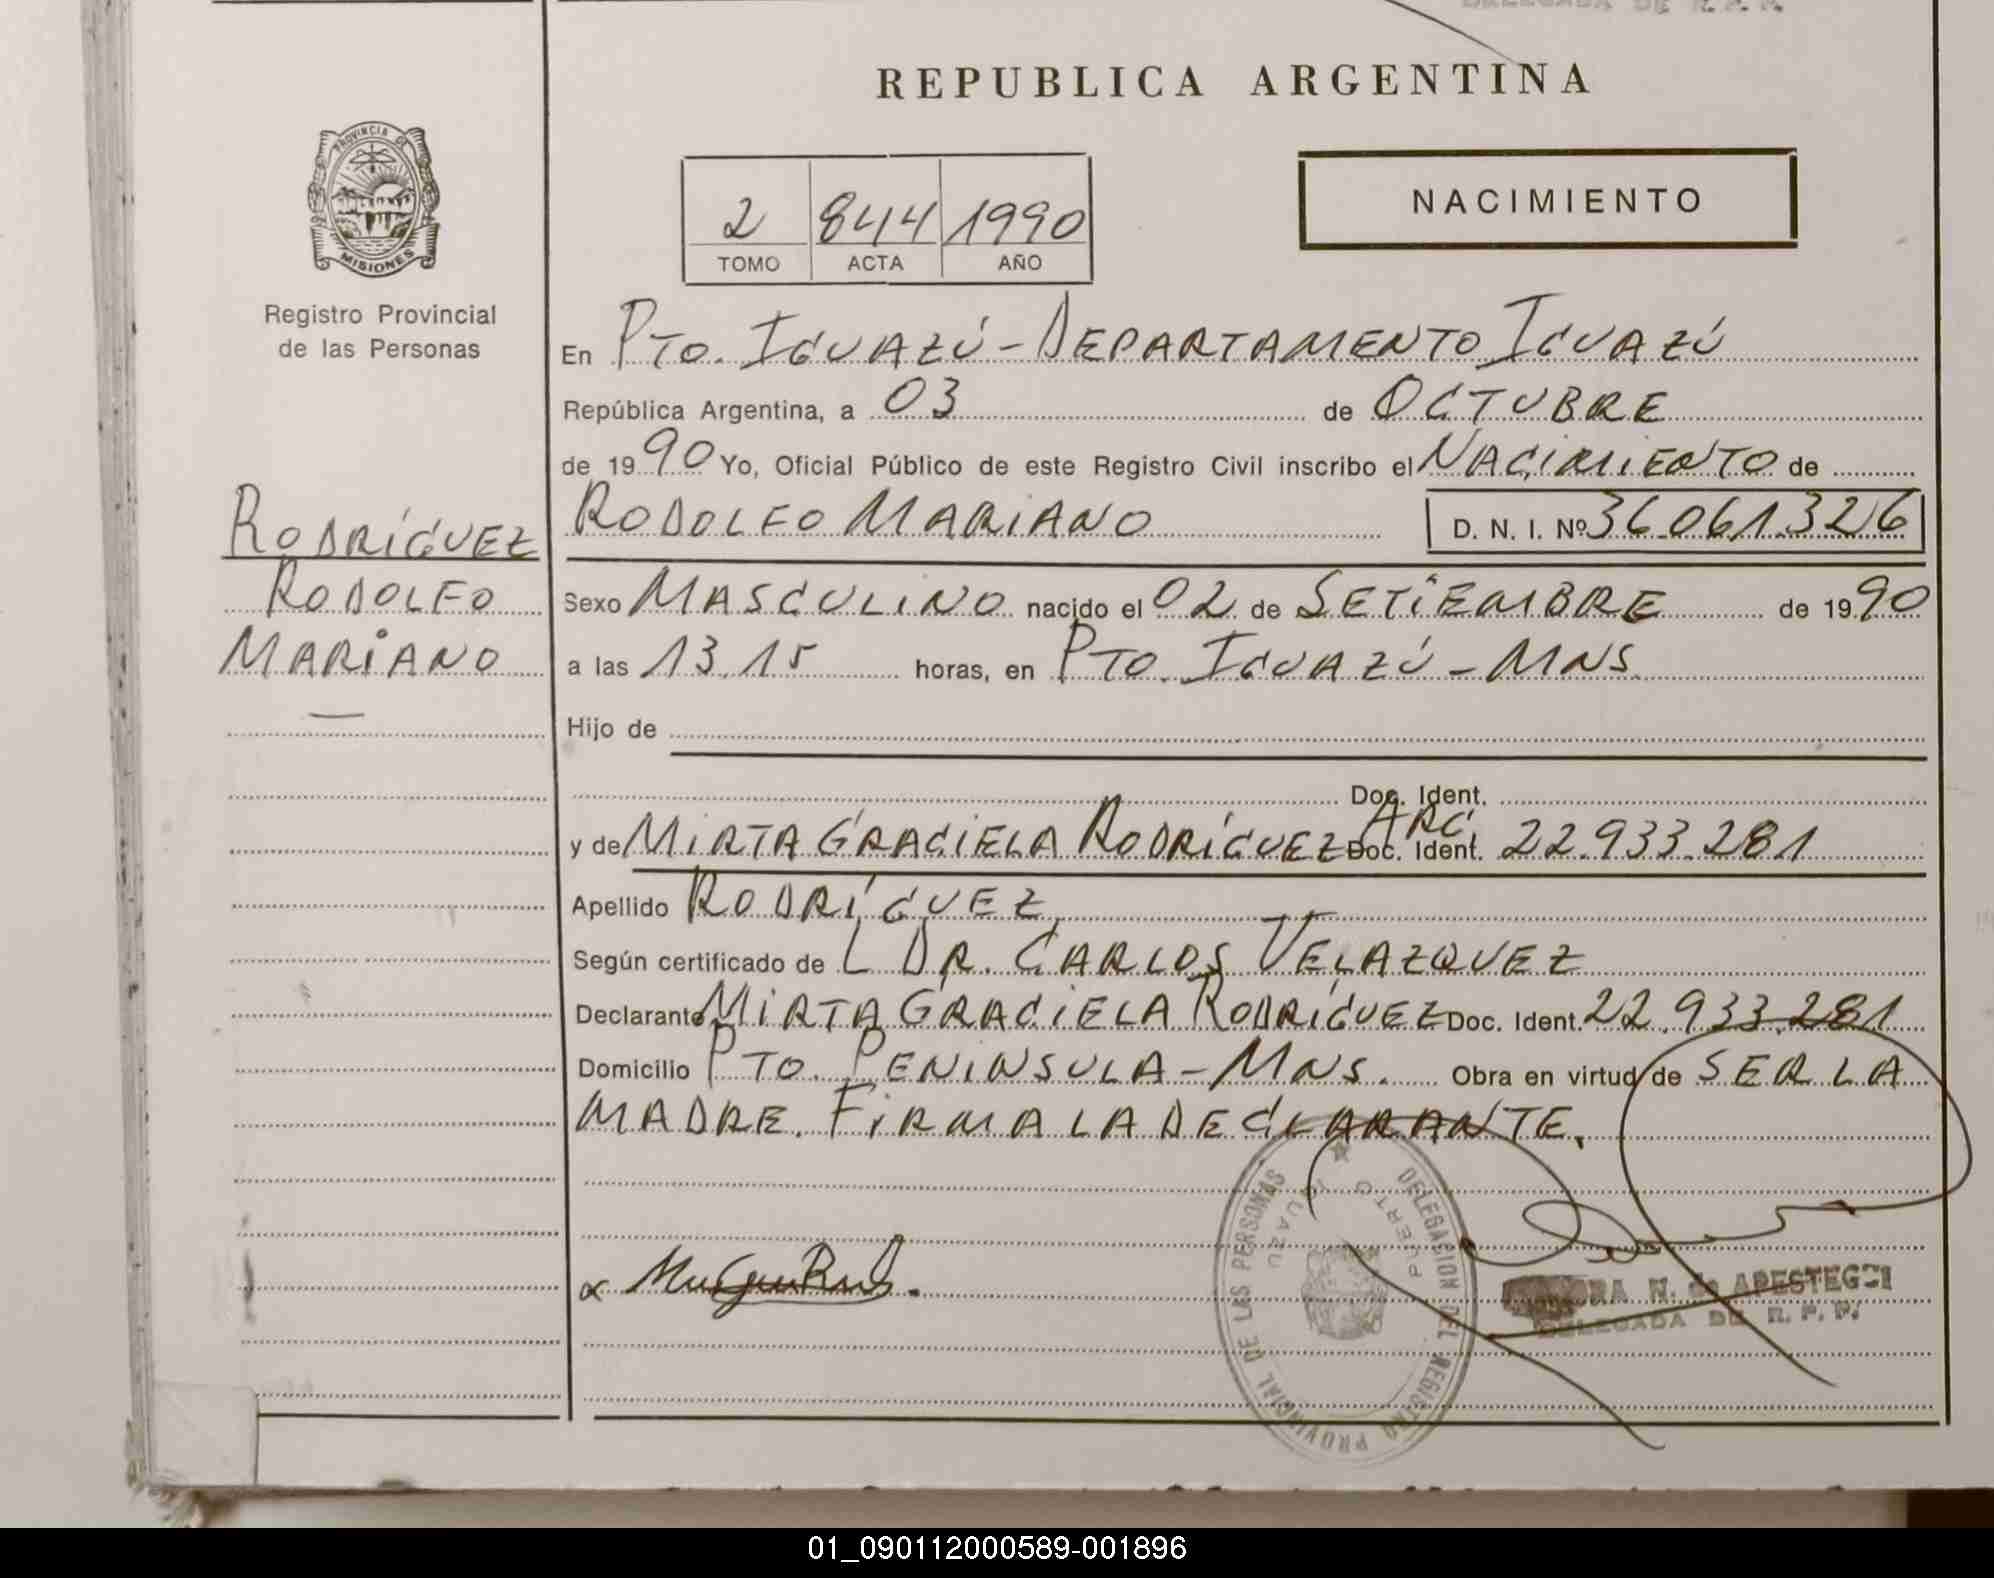 DELEGADA DE R. P. P.
REPUBLICA ARGENTINA
PROVINCIA DE
MISIONES
NACIMIENTO
2 844 1990
TOMO ACTA AÑO
Registro Provincial
de las Personas
En PTO. IGUAZÚ - DEPARTAMENTO IGUAZÚ
República Argentina, a 03 de OCTUBRE
de 1990 Yo, Oficial Público de este Registro Civil inscribo el NACIMIENTO de
RODOLFO MARIANO D. N. I. Nº 36.061.326
RODRÍGUEZ
RODOLFO
MARIANO
Sexo MASCULINO nacido el 02 de SETIEMBRE de 1990
a las 13.15 horas, en PTO. IGUAZÚ - MNS.
Hijo de
Doc. Ident.
y de MIRTA GRACIELA RODRÍGUEZ Doc. Ident. ARG. 22.933.281
Apellido RODRÍGUEZ
Según certificado de L DR. CARLOS VELAZQUEZ
Declarante MIRTA GRACIELA RODRÍGUEZ Doc. Ident. 22.933.281
Domicilio PTO. PENINSULA - MNS. Obra en virtud de SER LA
MADRE. FIRMA LA DECLARANTE.
DELEGACION DEL REGISTRO PROVINCIAL DE LAS PERSONAS
PUERTO IGUAZU
N. de APESTEGUI
DELEGADA DE R. P. P.
01_090112000589-001896